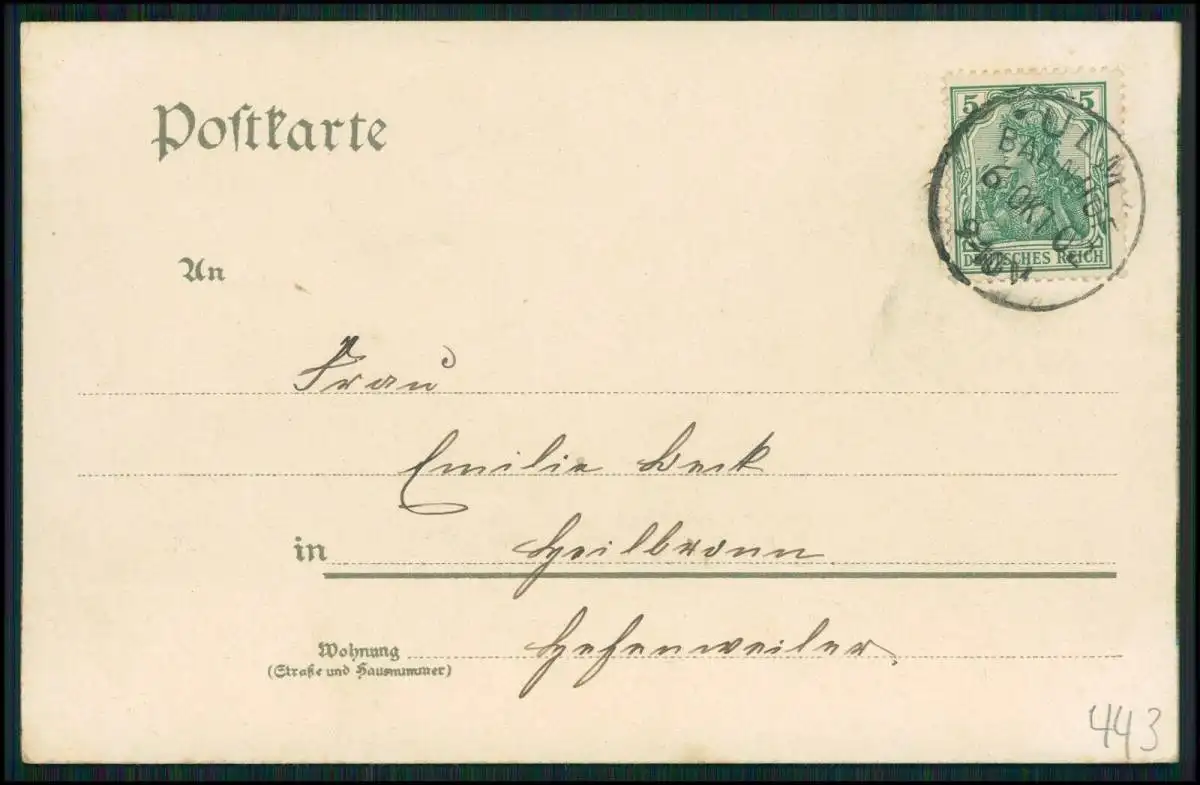 Postkarte
5 5
DEUTSCHES REICH
ULM
BAHNHOF
6 OKT 02
An
Frau
Emilie Beck
in Heilbronn
Wohnung
(Straße und Hausnummer)
443